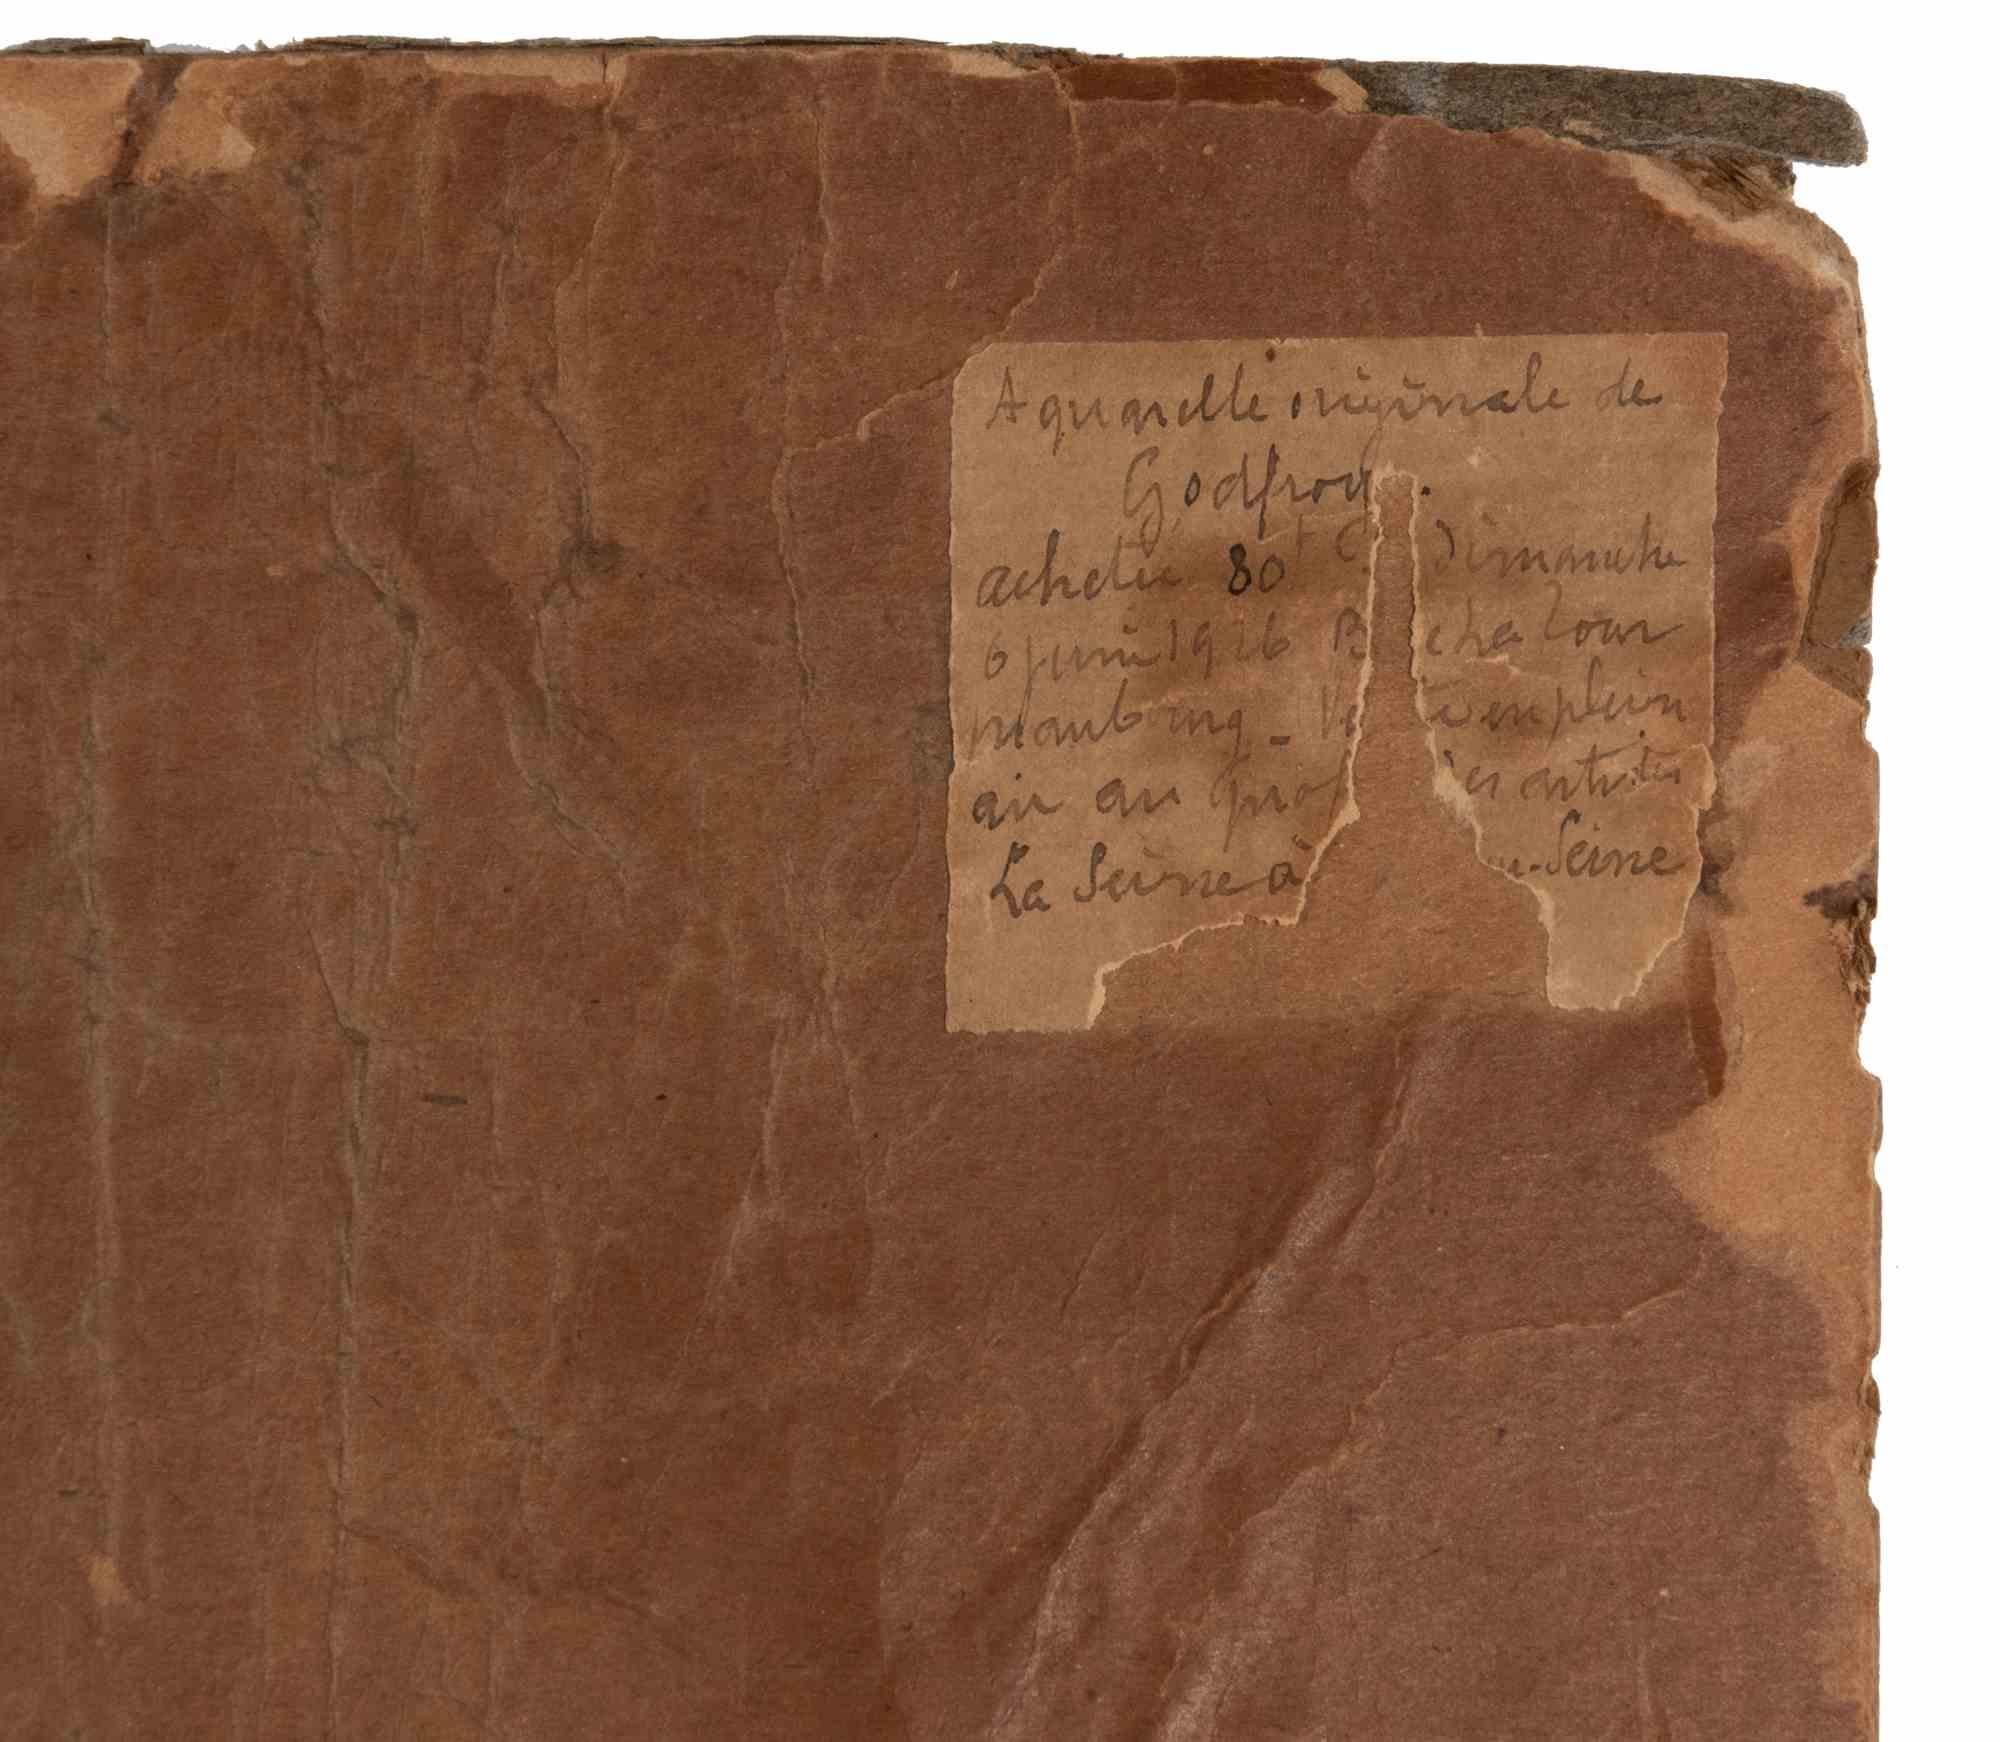 Aquarelle originale de
Godfroy.
achetée 80 Dimanche
6 juin 1926 B cha Tour
maubourg - V te en plein
air au prof des artistes
La Seine à u-Seine